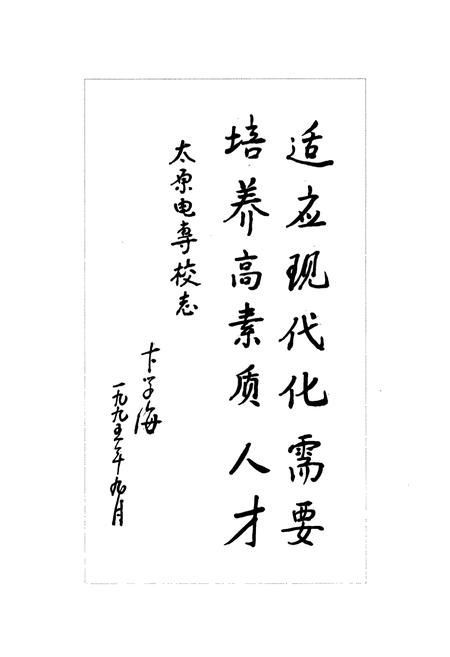 适应现代化需要
培养高素质人才
太原电專校志
卞学海
一九九五年九月